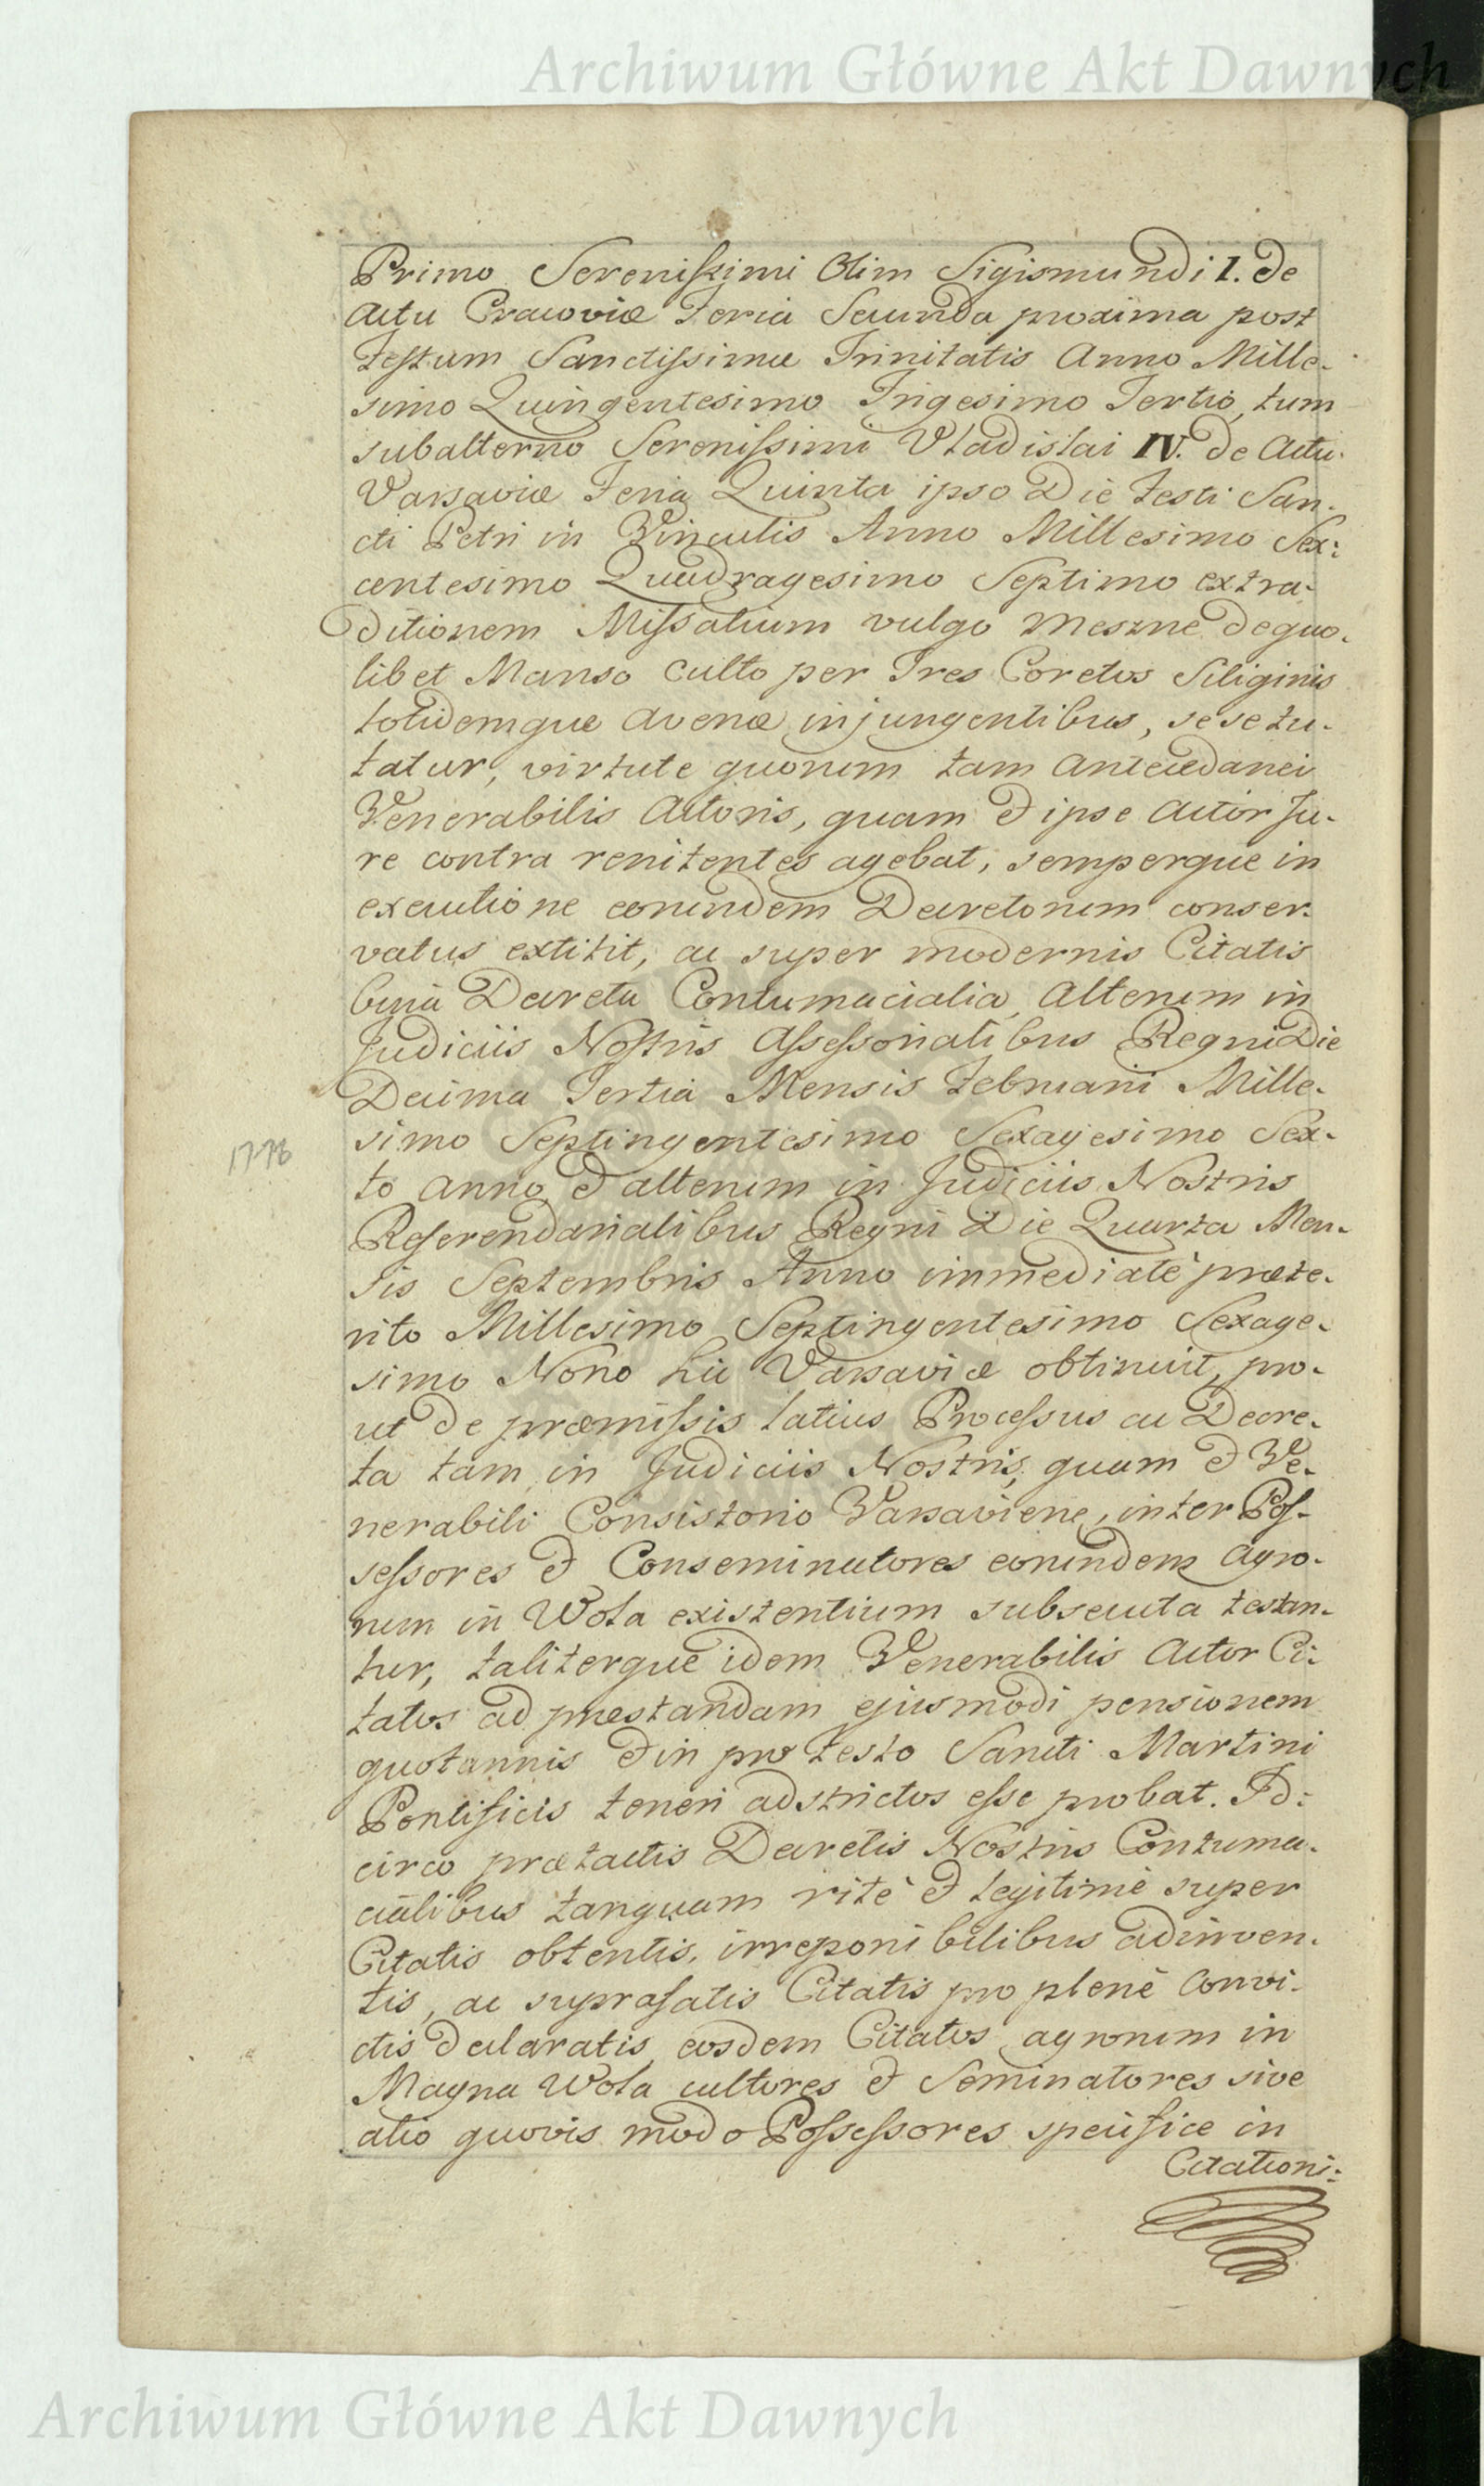 Archiwum Główne Akt Dawnych
Primo Serenissimi Olim Sigismundi I. de
Actu Cracoviæ Feria Secunda proxima post
Festum Sanctissimæ Trinitatis Anno Mille-
simo Quingentesimo Trigesimo Tertio, tum
subalterno Serenissimi Vladislai IV. de Actu
Varsaviæ Feria Quinta ipso Die Festi San-
cti Petri in Vinculis Anno Millesimo Sex:
centesimo Quadragesimo Septimo extra-
ditionem Missalium vulgo Meszne de quo-
libet Manso culto per Tres Coretos Siliginis
totidemque avenæ injungentibus, sese tu-
tatur, virtute quorum tam Antecedanei
Venerabilis Actoris, quam & ipse Actor Ju-
re contra renitentes agebat, semperque in
executione eorundem Decretorum conser-
vatus extitit, ac super modernis Citatis
bina Decreta Contumacialia, alterum in
Judiciis Nostris Assessorialibus Regni Die
Decima Tertia Mensis Februarii Mille-
simo Septingentesimo Sexagesimo Sex-
1778
to anno, & alterum in Judiciis Nostris
Referendarialibus Regni Die Quarta Men-
sis Septembris Anno immediatè præte-
rito Millesimo Septingentesimo Sexage-
simo Nono hic Varsaviæ obtinuit, pro-
ut de præmissis latius Processus ac Decre-
ta tam in Judiciis Nostris, quam & Ve-
nerabili Consistorio Varsaviene, inter Pos-
sessores & Conseminatores eorundem Agro-
rum in Wola existentium subsecuta testan-
tur, taliterque idem Venerabilis Actor Ci:
tatos ad præstandam ejusmodi pensionem
quotannis & in pro Festo Sancti Martini
Pontificis teneri adstrictos esse probat. Id:
circo prætactis Decretis Nostris Contuma-
cialibus tanquam ritè & legitimè super
Citatis obtentis, irreponibilibus adinven-
tis, ac suprafatis Citatis pro plenè convi-
ctis declaratis, eosdem Citatos, agrorum in
Magna Wola cultores & Seminatores sive
alio quovis modo Possessores specifice in
Citationi:
Archiwum Główne Akt Dawnych